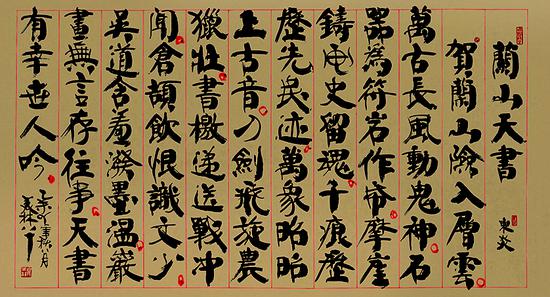 蘭山天書
賀蘭山險入層雲
萬古長風動鬼神石
器為符岩作帛摩崖
鑄史留魂千痕歷
歷先民迹萬象昭昭
上古音刀劍飛旋農
獵壯書檄遞送戰沖
聞倉頡飲恨識文少
吳道含羞潑墨溫巖
畫無言存往事天書
有幸世人吟